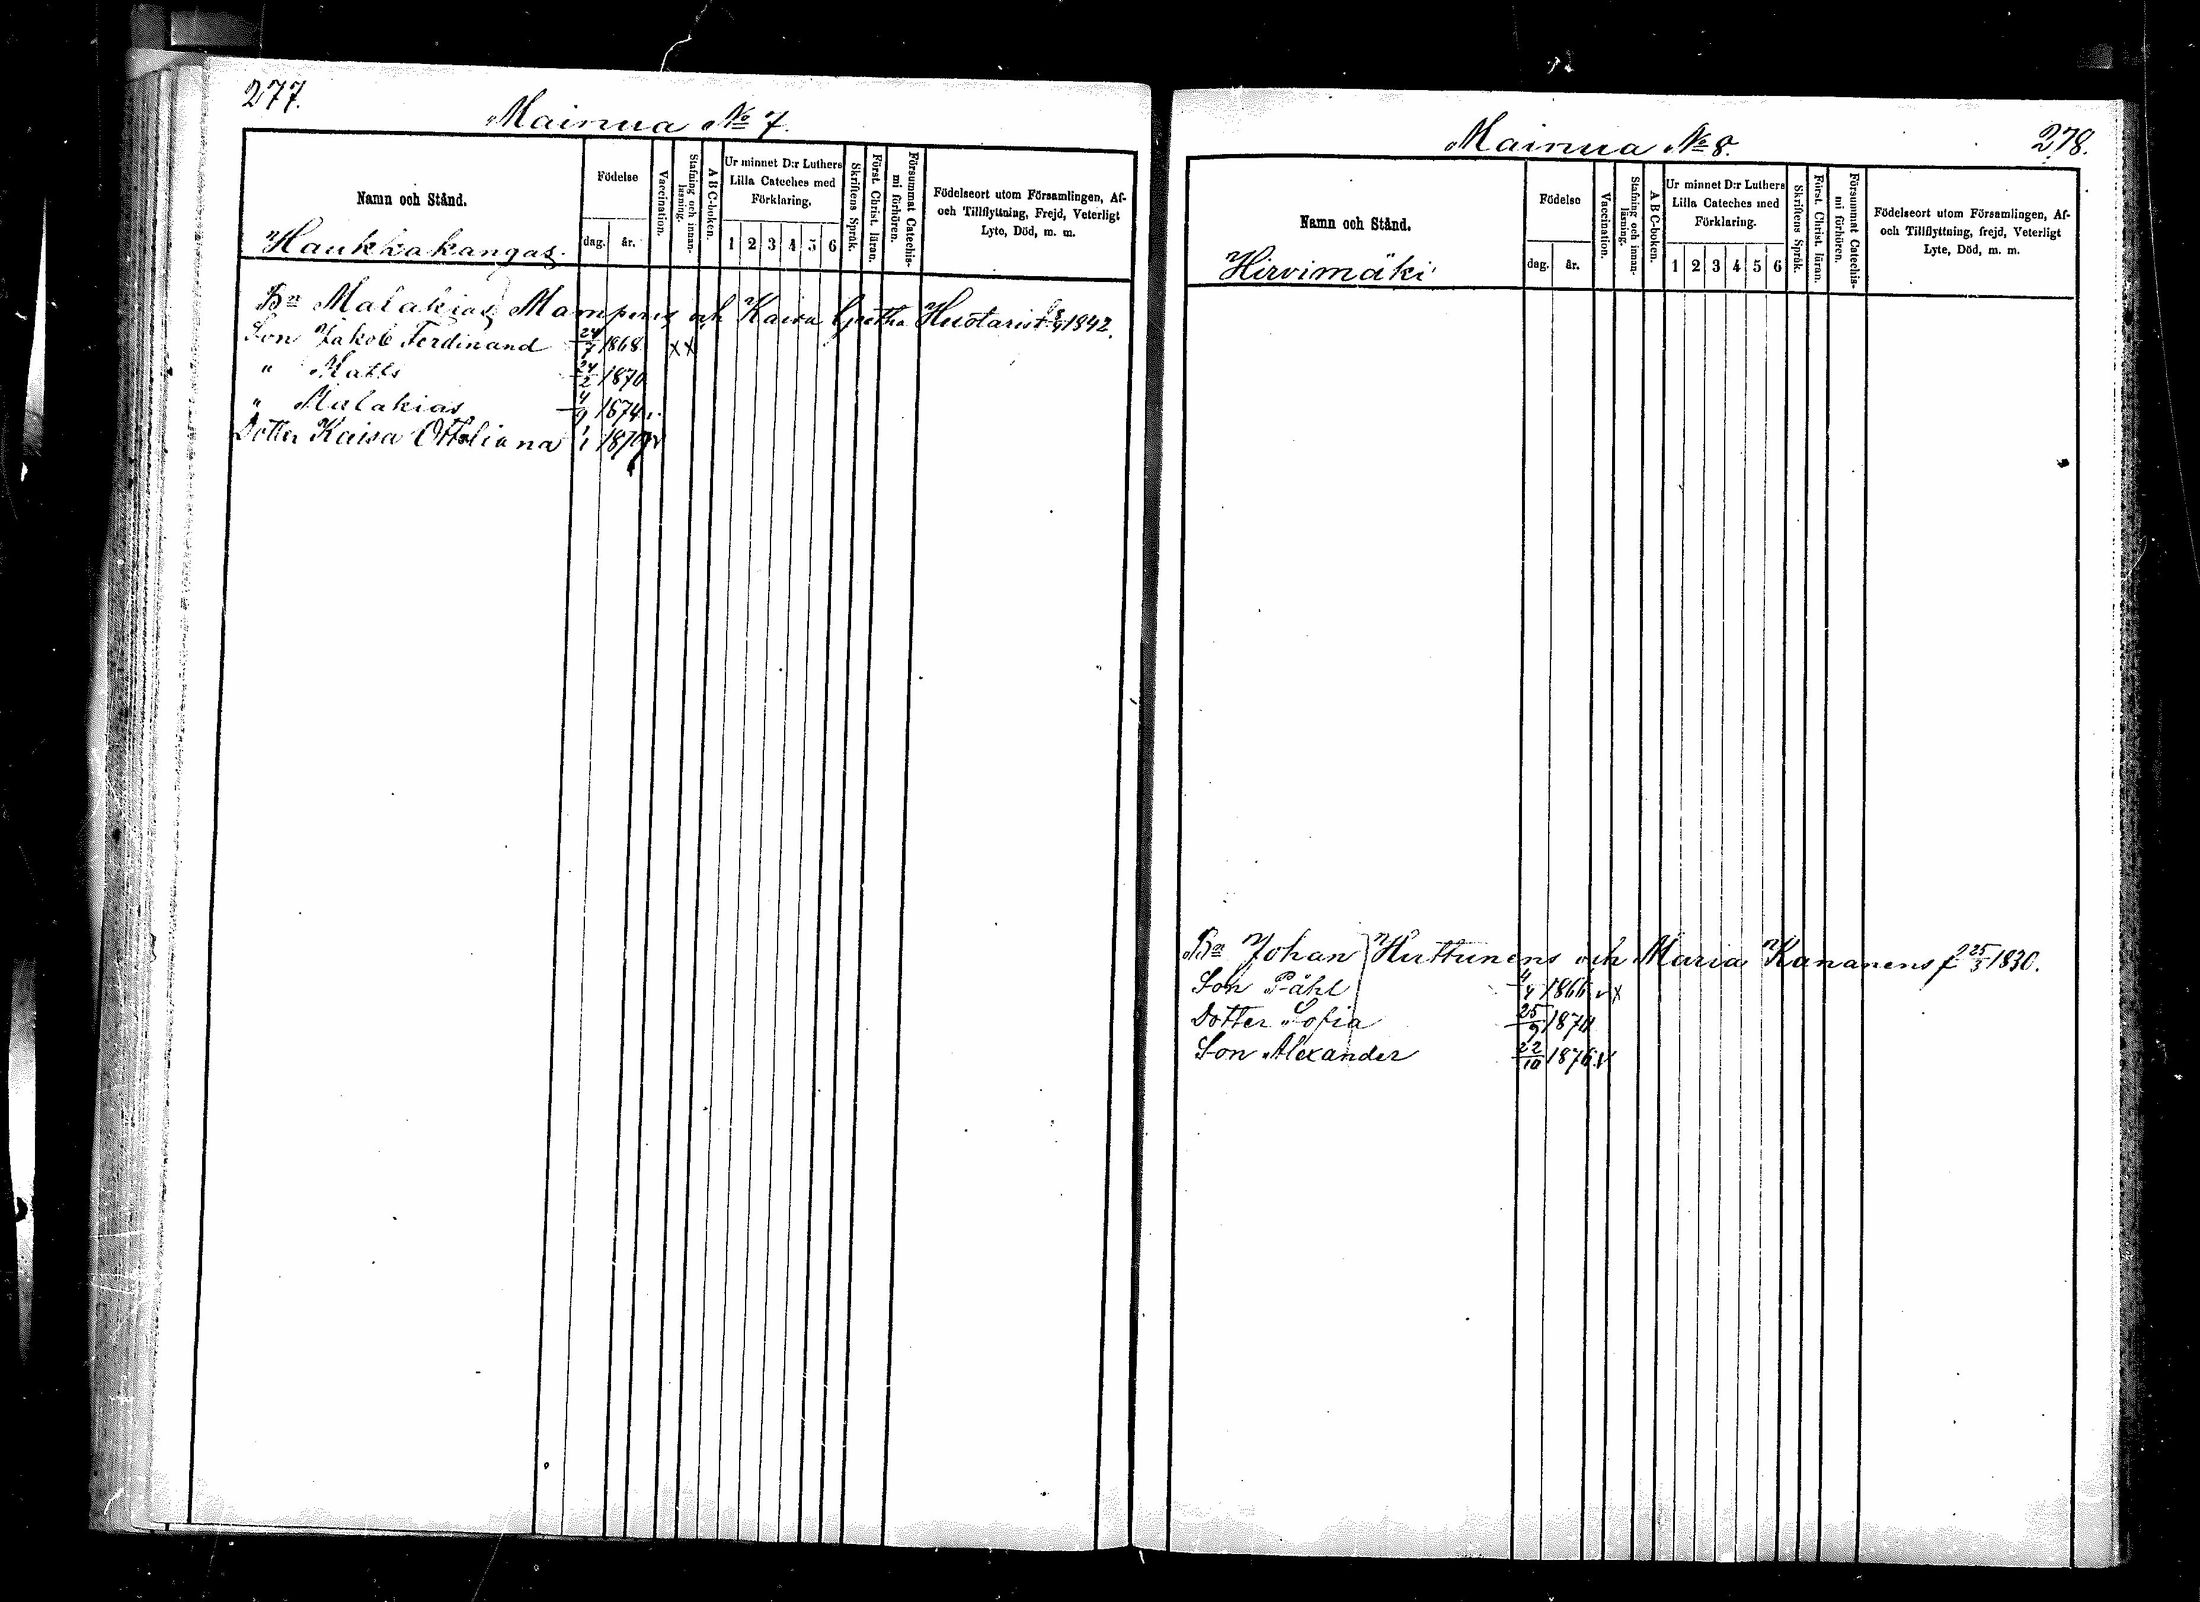 277.
Mainua No 7.
Namn och Stånd.
Haukkakangas.
Födelse
dag. år.
Vaccination.
Stafning och innanläsning.
ABC-boken.
Ur minnet D:r Luthers Lilla Cateches med Förklaring.
1 2 3 4 5 6
Skriftens Språk.
Först. Christ. läran.
Försummat Catechismi förhören.
Födelseort utom Församlingen, Af- och Tillflyttning, Frejd, Veterligt Lyte, Död, m. m.
Bn Malakias Mampens och Kaisa Gretha Hustaris 1842.
Son Jakob Ferdinand 24/7 1868 xx
" Matts 24/2 1870
" Malakias 4/9 1874 v
Dotter Kaisa Ottiliana 1/1 1877 v
Mainua No 8.
278.
Namn och Stånd.
Hirvimäki
Födelse
dag. år.
Vaccination.
Stafning och innanläsning.
ABC-boken.
Ur minnet D:r Luthers Lilla Cateches med Förklaring.
1 2 3 4 5 6
Skriftens Språk.
Först. Christ. läran.
Försummat Catechismi förhören.
Födelseort utom Församlingen, Af- och Tillflyttning, frejd, Veterligt Lyte, Död, m. m.
Bn Johan Huttunens och Maria Kananens f 25/3 1830.
Son Påhl 4/4 1866 v x
Dotter Sofia 25/9 1871
Son Alexander 22/10 1876 v